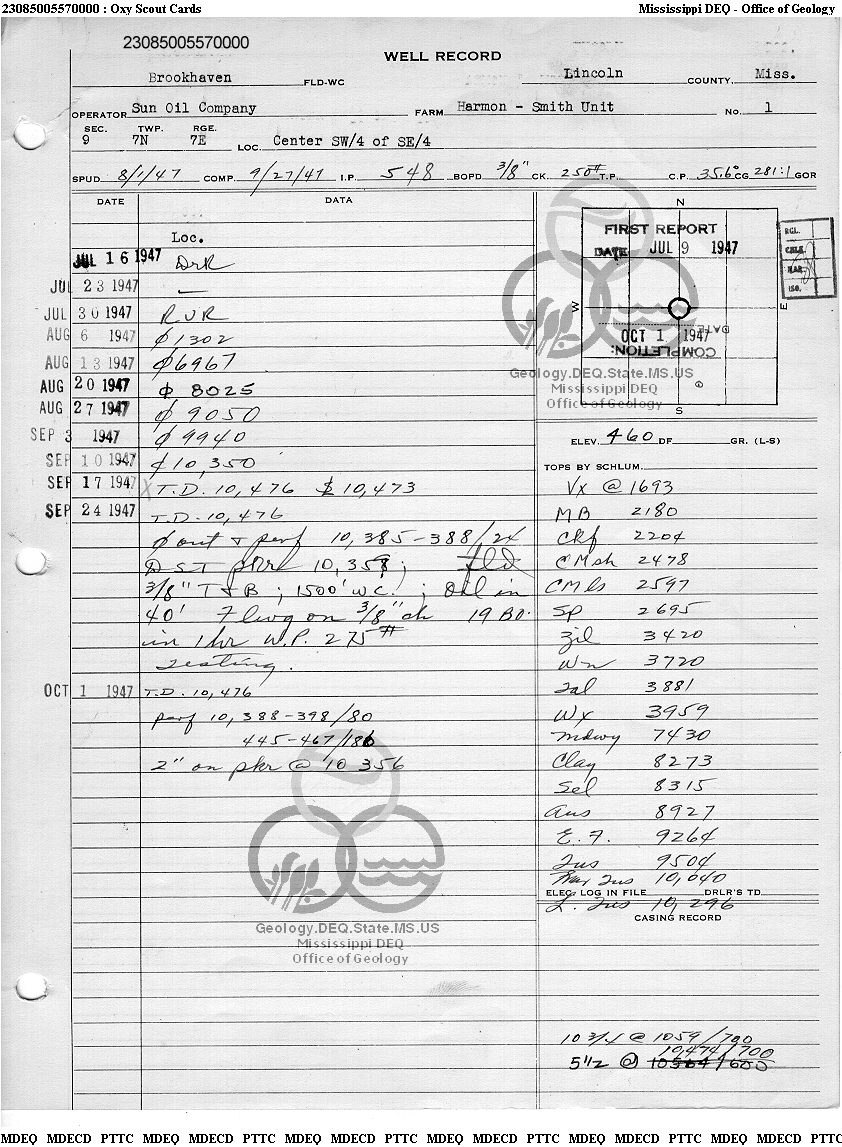 23085005570000 : Oxy Scout Cards Mississippi DEQ - Office of Geology
23085005570000
WELL RECORD
Brookhaven FLD-WC Lincoln COUNTY, Miss.
OPERATOR Sun Oil Company FARM Harmon - Smith Unit No. 1
SEC. TWP. RGE.
9 7N 7E LOC. Center SW/4 of SE/4
SPUD 8/1/47 COMP. 9/27/47 I.P. 548 BOPD 3/8" CK. 250# T.P. C.P. 35.6° CG 281:1 GOR
DATE DATA
N
FIRST REPORT
DATE JUL 9 1947
RGL.
W E
OCT 1 1947
DATE
COMPLETION:
S
Loc.
JUL 16 1947 DrR
JUL 23 1947 —
JUL 30 1947 RUR
AUG 6 1947 ϕ1302
AUG 13 1947 ϕ6967
AUG 20 1947 ϕ 8025
AUG 27 1947 ϕ 9050
SEP 3 1947 ϕ 9940
SEP 10 1947 ϕ10,350
SEP 17 1947 T.D. 10,476 $ 10,473
SEP 24 1947 T.D. 10,476
ϕ out + perf 10,385-388/24
DST pkr 10,358; fld
3/8" T&B; 1500' W.C.; Oil in
40' Flwg on 3/8" ch 19 BO.
in 1 hr W.P. 275#
Testing.
OCT 1 1947 T.D. 10,476
perf 10,388-398/80
445-467/186
2" on pkr @ 10 356
Geology.DEQ.State.MS.US
Mississippi DEQ
Office of Geology
Geology.DEQ.State.MS.US
Mississippi DEQ
Office of Geology
ELEV. 460 DF GR. (L-S)
TOPS BY SCHLUM.
Vx @ 1693
MB 2180
Ckf 2204
CMsh 2478
CMls 2597
Sp 2695
Zil 3420
Wn 3720
Tal 3881
Wx 3959
Mdwy 7430
Clay 8273
Sel 8315
Aus 8927
E.F. 9264
Tus 9504
Tus 10,040
ELEC. LOG IN FILE DRLR'S TD
L. Tus 10,296
CASING RECORD
10 3/4 @ 1059/700
10,474/700
5 1/2 @ 10564/600
MDEQ MDECD PTTC MDEQ MDECD PTTC MDEQ MDECD PTTC MDEQ MDECD PTTC MDEQ MDECD PTTC MDEQ MDECD PTTC